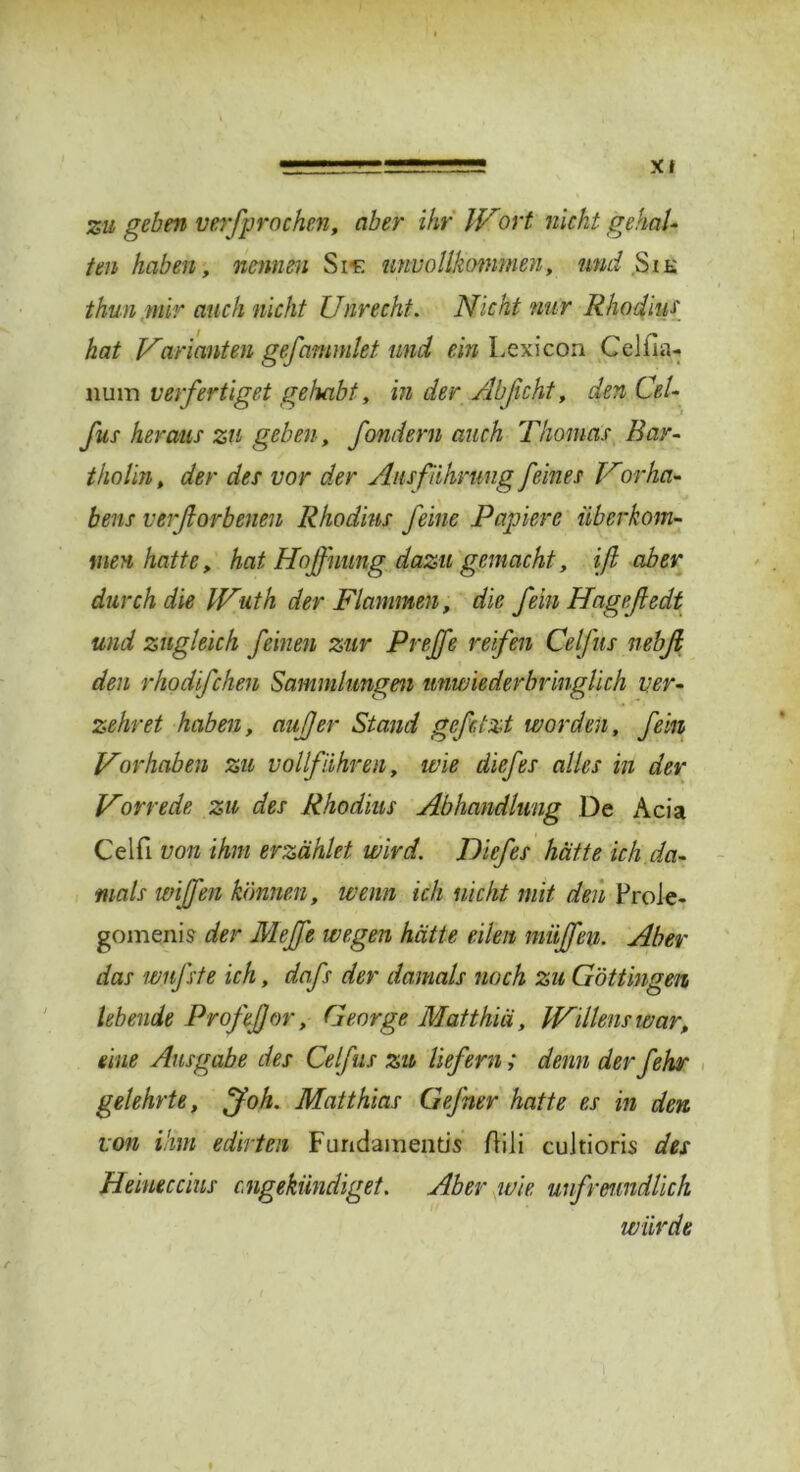 XI
zu geben verſprochen, aber ihr Wort nicht gehal-
ten haben, nennen SIE unvollkommen, und SIE
thun mir auch nicht Unrecht. Nicht nur Rhodius
hat Varianten geſammlet und ein Lexicon Celſia-
num verfertiget gehabt, in der Abſicht, den Cel-
ſus heraus zu geben, ſondern auch Thomas Bar-
tholin, der des vor der Ausführung ſeines Vorha-
bens verſtorbenen Rhodius ſeine Papiere überkom-
men hatte, hat Hoffnung dazu gemacht, iſt aber
durch die Wuth der Flammen, die ſein Hageſtedt
und zugleich ſeinen zur Preſſe reifen Celſus nebſt
den rhodiſchen Sammlungen unwiederbringlich ver-
zehret haben, auſſer Stand geſetzt worden, ſein
Vorhaben zu vollführen, wie dieſes alles in der
Vorrede zu des Rhodius Abhandlung De Acia
Celſi von ihm erzählet wird. Dieſes hätte ich da-
mals wiſſen können, wenn ich nicht mit den Prole-
gomenis der Meſſe wegen hätte eilen müſſen. Aber
das wuſste ich, daſs der damals noch zu Göttingen
lebende Profeſſor, George Matthiä, Willens war,
eine Ausgabe des Celſus zu liefern; denn der ſehr
gelehrte, Joh. Matthias Geſner hatte es in den
von ihm edirten Fundamentis ſtili cultioris des
Heineccius angekündiget. Aber wie unfreundlich
würde